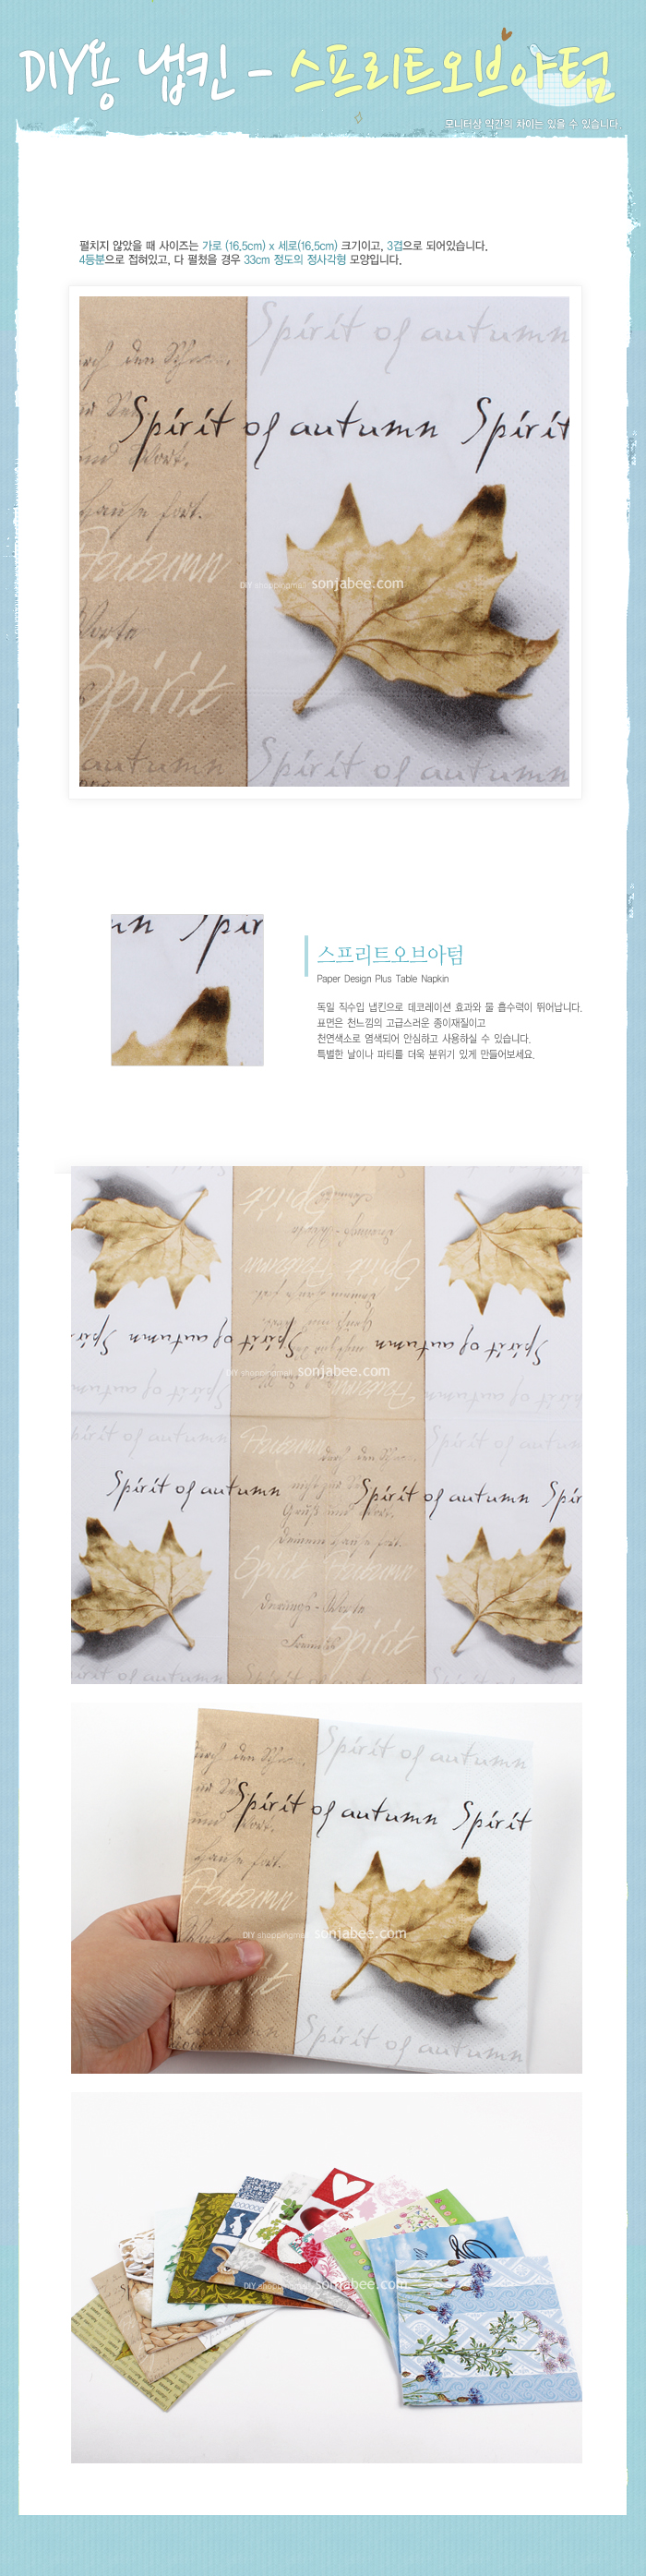 DIY용 냅킨 - 스프리트오브아텀
모니터상 약간의 차이는 있을 수 있습니다
펼치지 않았을 때 사이즈는 가로 (16,5cm) x 세로(16,5cm) 크기이고, 3겹으로 되어있습니다.
4등분으로 접혀있고, 다 펼쳤을 경우 33cm 정도의 정사각형 모양입니다.
Spirit of autumn
durch den
Spirit of autumn Spirit
und Wort,
hause fort.
Autumn
DIY shoppingmall sonjabee.com
Worte
Spirit
autumn
Spirit of autumn
스프리트오브아텀
Paper Design Plus Table Napkin
독일 직수입 냅킨으로 데코레이션 효과와 물 흡수력이 뛰어납니다.
표면은 천느낌의 고급스러운 종이재질이고
천연색소로 염색되어 안심하고 사용하실 수 있습니다.
특별한 날이나 파티를 더욱 분위기 있게 만들어보세요.
Spirit
Spirit
Autumn
Spirit of autumn
Spirit of autumn
Spirit of autumn
DIY shoppingmall sonjabee.com
Autumn
Spirit of autumn
Autumn
Spirit of autumn
durch den
Spirit of autumn
Spirit of autumn Spir
Gruß und Wort,
hause fort.
Spirit Autumn
Worte
Spirit
Spirit of autumn
durch den
Spirit of autumn Spirit
und Wort,
hause fort.
Autumn
DIY shoppingmall sonjabee.com
autumn
Spirit of autumn
DIY shoppingmall sonjabee.com